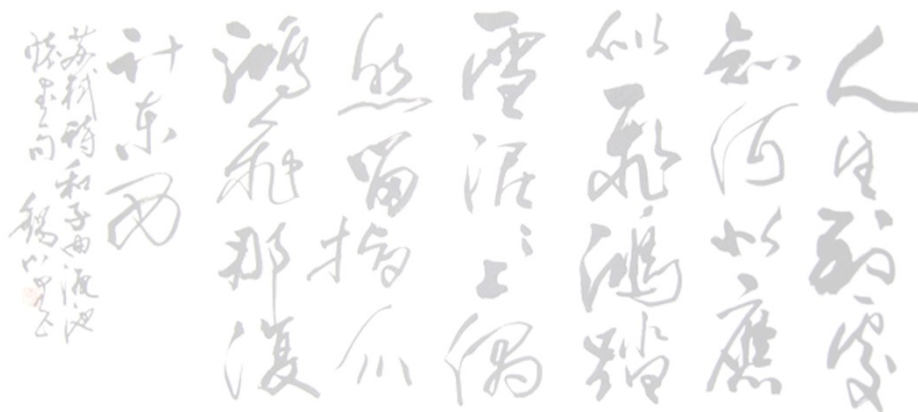 人生到處
知何似應
似飛鴻踏
雪泥〻上偶
然留指爪
鴻飛那復
計東西
蘇軾詩和子由澠池